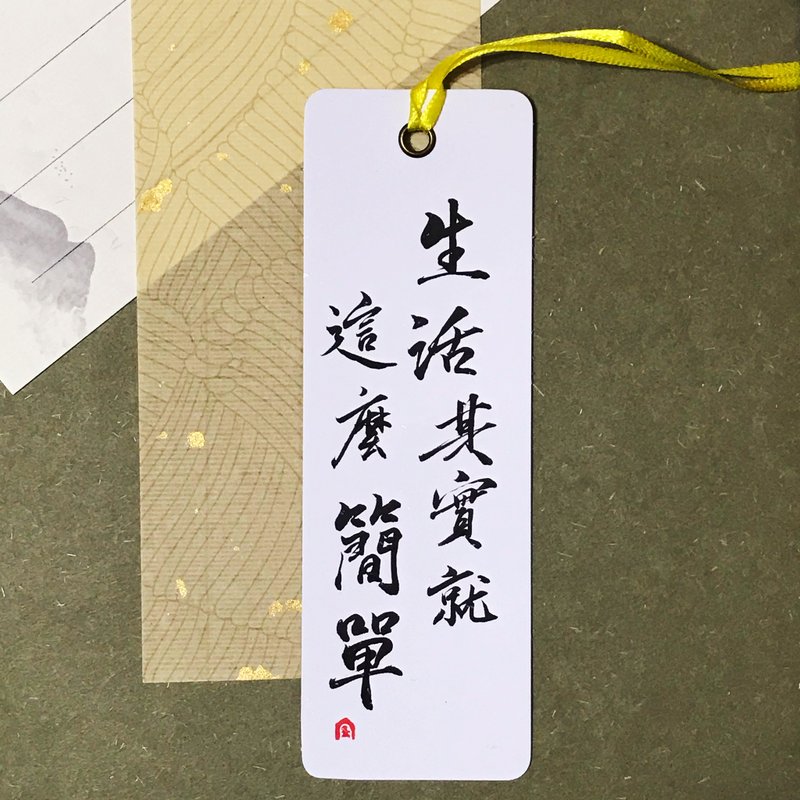 生活其實就
這麼簡單